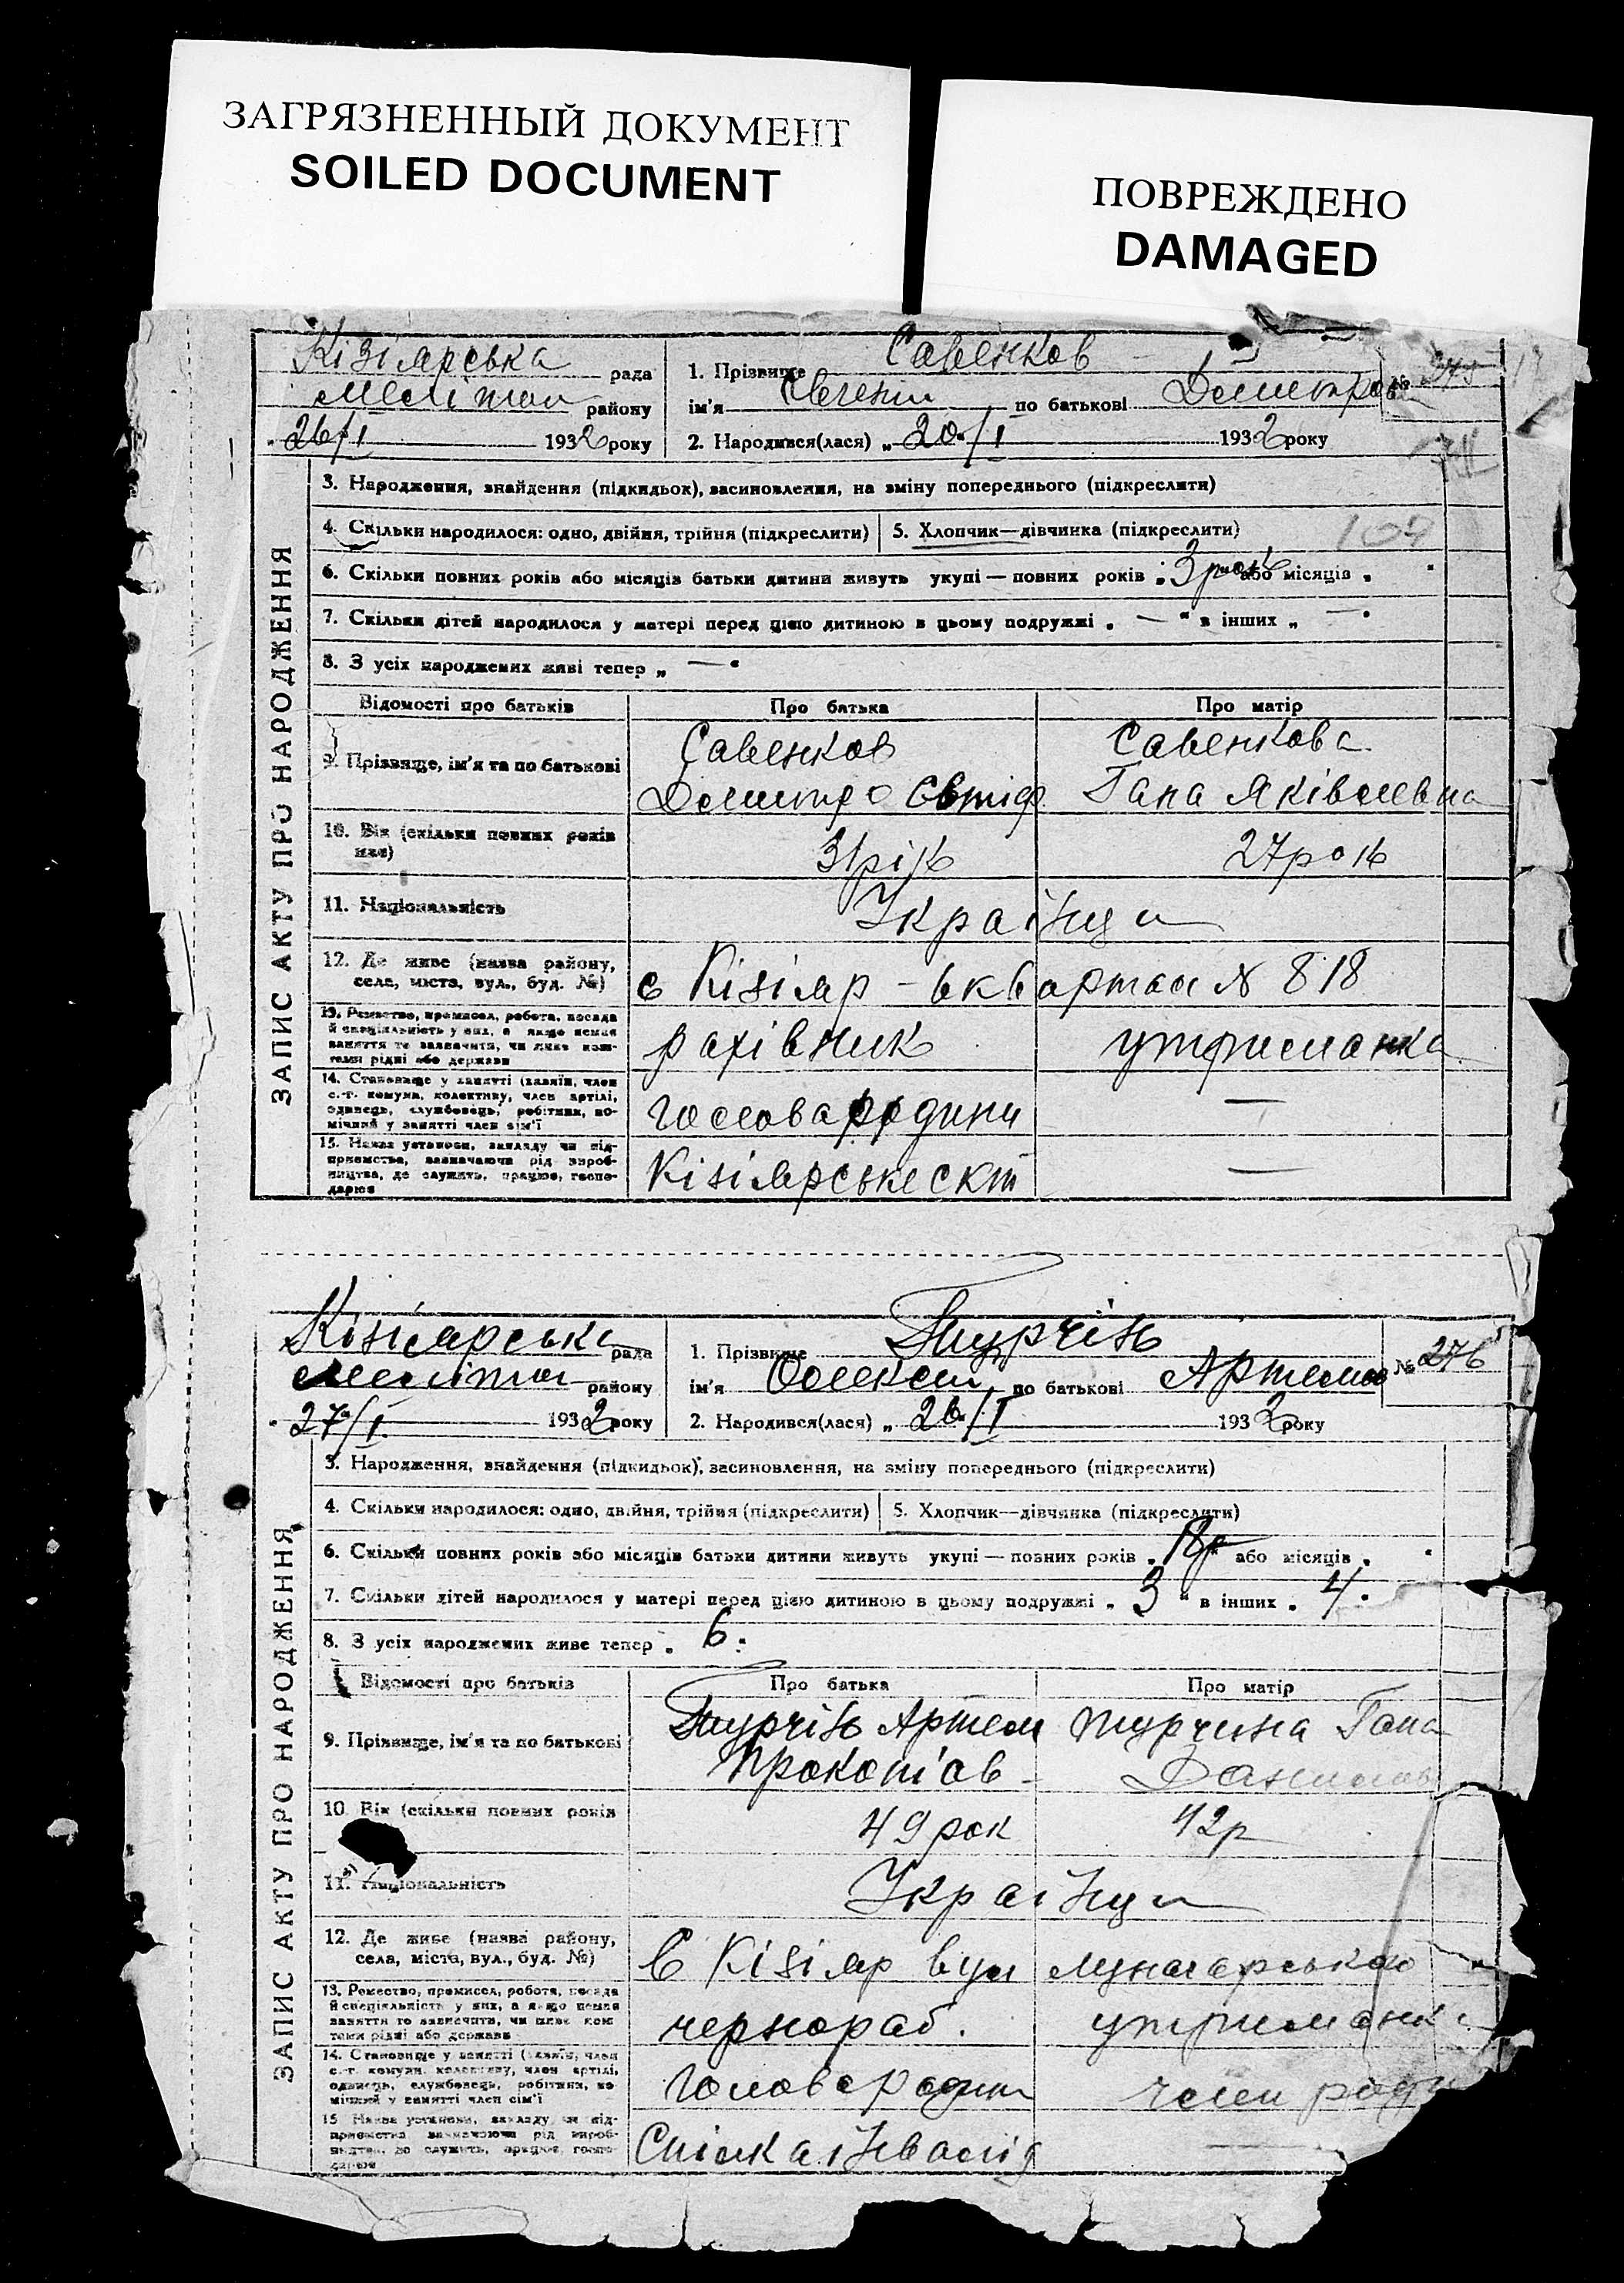 ЗАГРЯЗНЕННЫЙ ДОКУМЕНТ
SOILED DOCUMENT
ПОВРЕЖДЕНО
DAMAGED
Кізіярська рада
Мелітоп району
26/I 1932 року
1. Прізвище Савенков
ім'я Євгени по батькові Домитров
№ 275
2. Народився(лася) „20/I 1932 року
ЗАПИС АКТУ ПРО НАРОДЖЕННЯ
3. Народження, знайдення (підкидьок), засиновлення, на зміну попереднього (підкреслити)
4. Скільки народилося: одно, двійня, трійня (підкреслити)
5. Хлопчик—дівчинка (підкреслити)
107
6. Скільки повних років або місяців батьки дитини живуть укупі — повних років „3 рок або місяців „ “
7. Скільки дітей народилося у матері перед цією дитиною в цьому подружжі „ — “ в інших „ — “
8. З усіх народжених живі тепер „ — “
Відомості про батьків Про батька Про матір
9. Прізвище, ім'я та по батькові
Савенков Савенкова
Домитро Євтіф Гана Яківлевна
10. Вік (скільки повних років має)
31 рік 27 рок
11. Національність Українци
12. Де живе (назва району, села, міста, вул., буд. №)
с Кізіяр – вквартал № 818
13. Ремество, промисел, робота, посада й спеціяльність у них, а якщо немає заняття то зазначити, чи живе коштами рідні або держави
рахівник утриманка
14. Становище у занятті (хазяїн, член с.-г. комуни, колективу, член артілі, одинець, службовець, робітник, помічний у занятті член сім'ї
голова родини —
15. Назва установи, закладу чи підприємства, зазначаючи рід виробництва, де служить, працює, господарює
Кізіярське скт —
Кізіярська рада
Меліпол району
27/I 1932 року
1. Прізвище Турчін
ім'я Олексій по батькові Артемов
№ 276
2. Народився(лася) „26/I 1932 року
ЗАПИС АКТУ ПРО НАРОДЖЕННЯ
3. Народження, знайдення (підкидьок), засиновлення, на зміну попереднього (підкреслити)
4. Скільки народилося: одно, двійня, трійня (підкреслити)
5. Хлопчик—дівчинка (підкреслити)
6. Скільки повних років або місяців батьки дитини живуть укупі — повних років „18р“ або місяців „ “
7. Скільки дітей народилося у матері перед цією дитиною в цьому подружжі „3“ в інших „4“
8. З усіх народжених живе тепер „6“
Відомості про батьків Про батька Про матір
9. Прізвище, ім'я та по батькові
Турчін Артем Турчина Гана
Прокопіов Данилов
10. Вік (скільки повних років
49 рок 42р
11. Національність Українци
12. Де живе (назва району, села, міста, вул., буд. №)
с Кізіяр вул Луначарського
13. Ремество, промисел, робота, посада й спеціяльність у них, а якщо немає заняття то зазначити, чи живе коштами рідні або держави
чернораб. утриманка
14. Становище у занятті (хазяїн, член с.-г. комуни, колективу, член артілі, одинець, службовець, робітник, помічний у занятті член сім'ї
голова родини член роди
15. Назва установи, закладу чи підприємства зазначаючи рід виробництва, де служить, працює, господарює
Спілка інвалід —